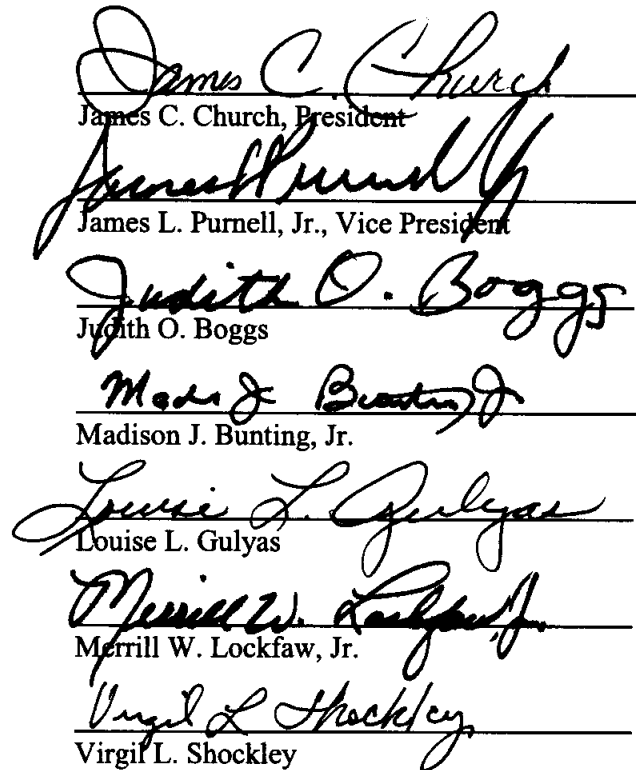 James C. Church
James C. Church, President
James L. Purnell, Jr.
James L. Purnell, Jr., Vice President
Judith O. Boggs
Judith O. Boggs
Madison J. Bunting, Jr.
Louise L. Gulyas
Louise L. Gulyas
Merrill W. Lockfaw, Jr.
Merrill W. Lockfaw, Jr.
Virgil L Shockley
Virgil L. Shockley